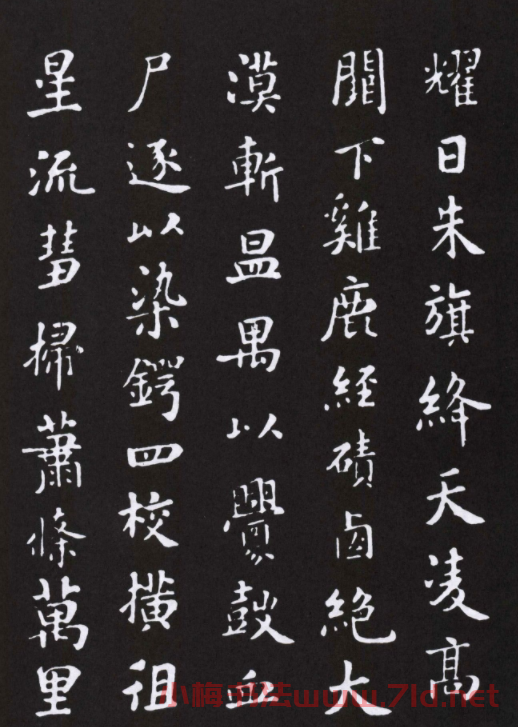 耀日朱旗絳天凌高
闕下雞鹿經磧鹵絕大
漠斬昷禺以釁鼓血
尸逐以染鍔四校橫徂
星流彗掃蕭條萬里
小梅书法www.7ld.net